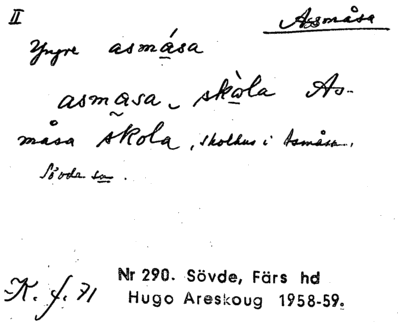 II
Asmåsa
Yngre asmása
asmasa, skòla As-
måsa skola, skolhus i Asmåsa,
Sövde sn.
K. f. 71
Nr 290. Sövde, Färs hd
Hugo Areskoug 1958-59.